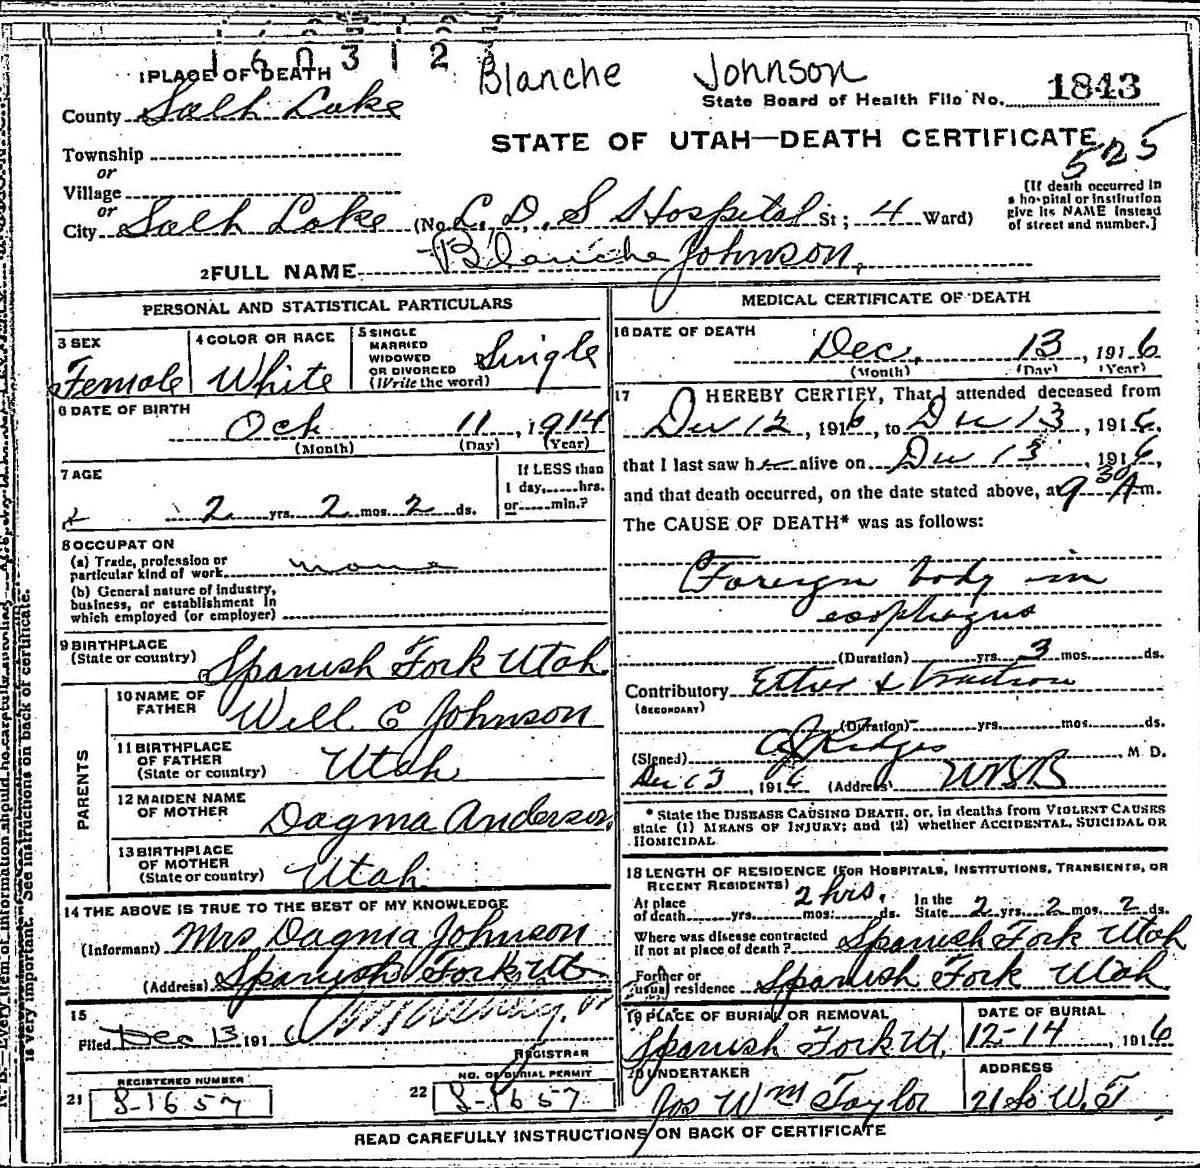 1603121
Blanche Johnson
1 PLACE OF DEATH
State Board of Health File No. 1843
County Salt Lake
STATE OF UTAH—DEATH CERTIFICATE
525
Township
or
Village
or
City Salt Lake (No. L. D. S Hospital St; 4 Ward)
[If death occurred in
a hospital or institution
give its NAME instead
of street and number.]
2 FULL NAME Blanche Johnson,
PERSONAL AND STATISTICAL PARTICULARS
3 SEX Female
4 COLOR OR RACE White
5 SINGLE
MARRIED
WIDOWED
OR DIVORCED
(Write the word) Single
6 DATE OF BIRTH
Oct 11, 1914
(Month) (Day) (Year)
7 AGE
2 yrs. 2 mos. 2 ds.
If LESS than
1 day,......hrs.
or......min.?
8 OCCUPATION
(a) Trade, profession or
particular kind of work none
(b) General nature of industry,
business, or establishment in
which employed (or employer)
9 BIRTHPLACE
(State or country) Spanish Fork Utah
PARENTS
10 NAME OF
FATHER Will C Johnson
11 BIRTHPLACE
OF FATHER
(State or country) Utah
12 MAIDEN NAME
OF MOTHER Dagma Anderson
13 BIRTHPLACE
OF MOTHER
(State or country) Utah
14 THE ABOVE IS TRUE TO THE BEST OF MY KNOWLEDGE
(Informant) Mrs Dagma Johnson
(Address) Spanish Fork Ut
15
Filed Dec 13 1916
REGISTRAR
REGISTERED NUMBER
21 S-1657
NO. OF BURIAL PERMIT
22 S-1657
MEDICAL CERTIFICATE OF DEATH
16 DATE OF DEATH
Dec, 13, 1916
(Month) (Day) (Year)
17 I HEREBY CERTIFY, That I attended deceased from
Dec 12, 1916, to Dec 13, 1916,
that I last saw her alive on Dec 13, 1916,
and that death occurred, on the date stated above, at 9 30 A m.
The CAUSE OF DEATH* was as follows:
Foreign body in
esophagus
(Duration) yrs. 3 mos. ds.
Contributory Ether &
(SECONDARY)
(Duration) yrs. mos. ds.
(Signed) Ridges M D.
Dec 13 1916 (Address)
* State the DISEASE CAUSING DEATH, or, in deaths from VIOLENT CAUSES
state (1) MEANS OF INJURY; and (2) whether ACCIDENTAL, SUICIDAL OR
HOMICIDAL
18 LENGTH OF RESIDENCE (FOR HOSPITALS, INSTITUTIONS, TRANSIENTS, OR
RECENT RESIDENTS)
At place
of death......yrs......mos......ds. 2 hrs. In the
State 2 yrs. 2 mos. 2 ds.
Where was disease contracted
if not at place of death? Spanish Fork Utah
Former or
usual residence Spanish Fork Utah.
19 PLACE OF BURIAL OR REMOVAL
Spanish Fork Ut.
DATE OF BURIAL
12-14, 1916
20 UNDERTAKER
Jos Wm Taylor
ADDRESS
21 So W. T
READ CAREFULLY INSTRUCTIONS ON BACK OF CERTIFICATE
N. B.—Every item of information should be carefully supplied.
is very important. See instructions on back of certificate.